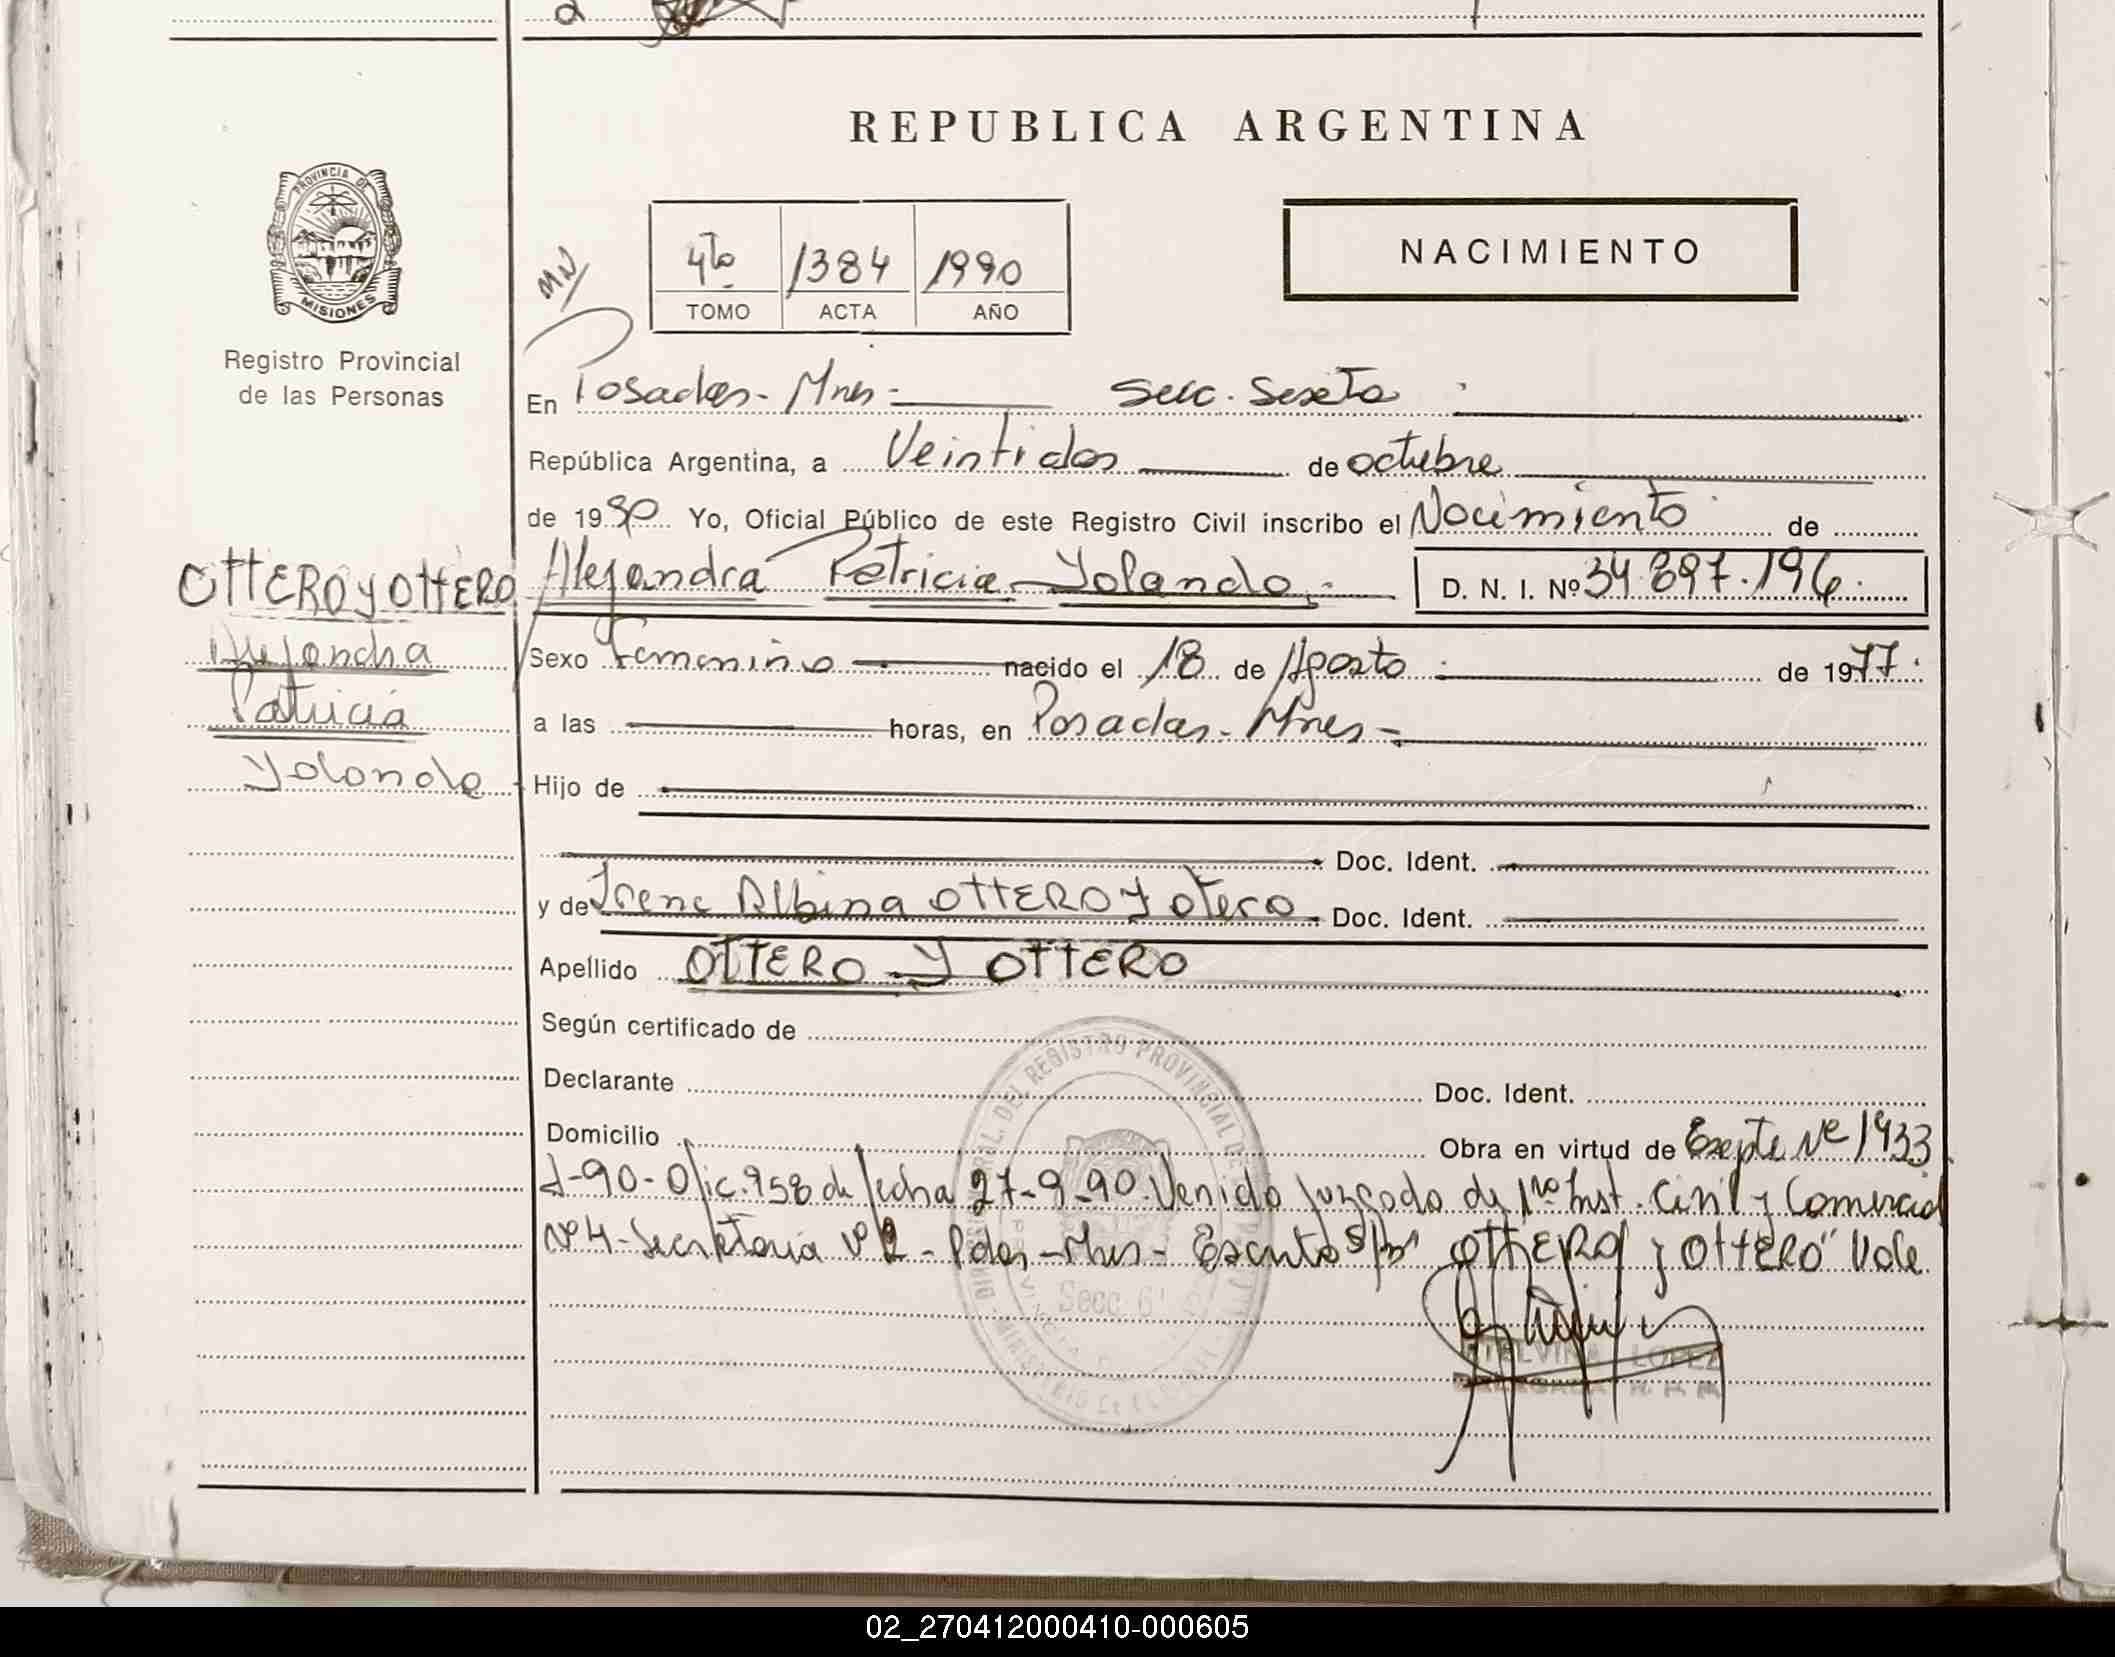 REPUBLICA ARGENTINA
PROVINCIA DE
MISIONES
Registro Provincial
de las Personas
4to 1384 1990
TOMO ACTA AÑO
NACIMIENTO
En Posadas - Mnes - Secc. Sexta
República Argentina, a Veintidos de octubre
de 1990 Yo, Oficial Público de este Registro Civil inscribo el Nacimiento de
OTTERO y OTTERO
Alejandra Patricia Yolanda D. N. I. Nº 34.897.196
Alejandra
Patricia
Yolanda
Sexo Femenino nacido el 18 de Agosto de 1977
a las horas, en Posadas - Mnes -
Hijo de
Doc. Ident.
y de Irene Albina OTTERO y otero Doc. Ident.
Apellido OTTERO Y OTTERO
Según certificado de
Declarante Doc. Ident.
Domicilio Obra en virtud de Expte Nº 1933
J-90 - Ofic. 958 de fecha 27-9-90. Venido Juzgado de 1ra Inst. Civil y Comercial
Nº 4 - Secretaría Nº 2 - Pdas - Mnes - OTTERO y OTTERO" Vale
Secc. 6ª
LOPEZ
02_270412000410-000605